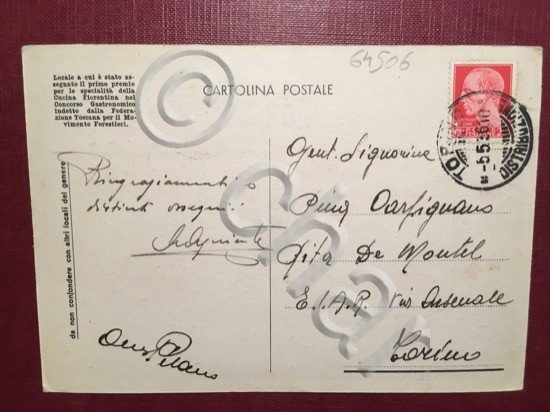 64506
Locale a cui è stato as-
segnato il primo premio
per le specialità della
Cucina Fiorentina nel
Concorso Gastronomico
indetto dalla Federa-
zione Toscana per il Mo-
vimento Forestieri.
CARTOLINA POSTALE
da non confondere con altri locali del genere
Ringraziamenti e
distinti ossequi
Gent. Signorina
Pina Carfignano
Gita De Montel
E.I.A.R. Via Arsenale
Torino
©